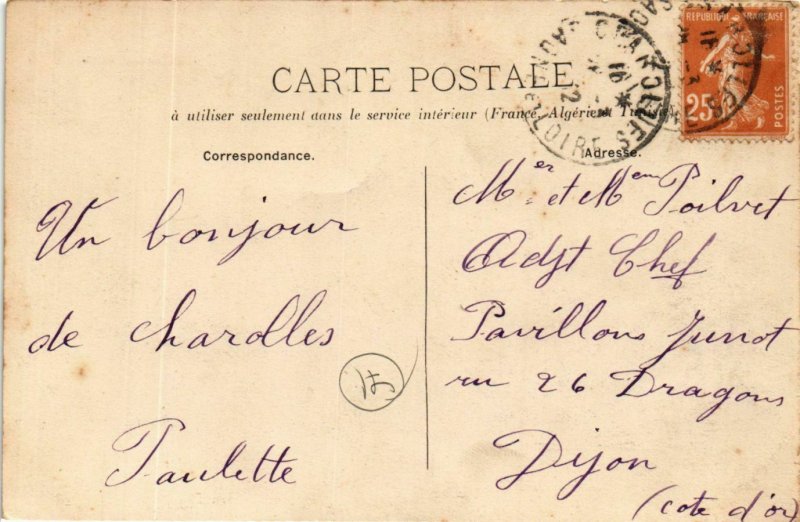 CARTE POSTALE
à utiliser seulement dans le service intérieur (France, Algérie et Tunisie)
Correspondance.
Adresse.
RÉPUBLIQUE FRANÇAISE
25
POSTES
CHAROLLES
SAONE ET LOIRE
Un bonjour
de Charolles
Paulette
Mer et Mem Poilvet
Adjt Chef
Pavillons Junot
ru 26 Dragons
Dijon
(cote d'or)
15